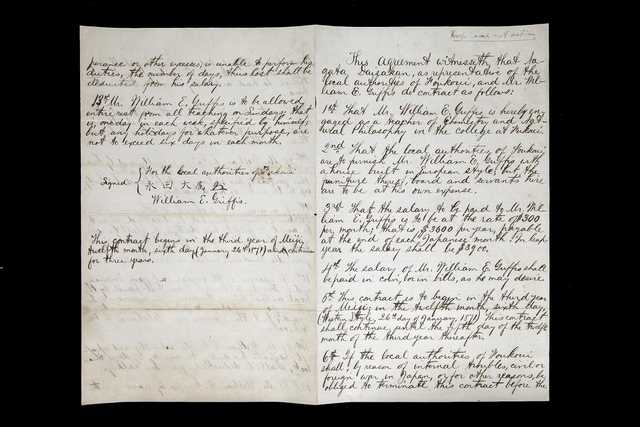 perance or other excesses, is unable to perform his
duties, the number of days, thus lost shall be
deducted from his salary.
13th Mr. William E. Griffis is to be allowed
entire rest from all teaching on Sundays; that
is, one day in each week, specified by himself;
but any holidays for whatever purpose, are
not to exceed six days in each month.
For the local authorities of Foukoui
Signed
永田大属
William E. Griffis.
This contract begins in the third year of Meiji,
twelfth month, sixth day (January 26th 1871) and continues
for three years.
This Agreement witnesseth that Na-
gata Daisakan, as representative of the
local authorities of Foukoui, and Mr. Wil-
liam E. Griffis do contract as follows:
1st That Mr. William E. Griffis is hereby en-
gaged as a teacher of Chemistry and Nat-
ural Philosophy in the college at Foukoui.
2nd That the local authorities of Foukoui
are to furnish Mr. William E. Griffis with
a house built in European style; but, the
furniture thereof, board and servants hire
are to be at his own expense.
3rd That the salary to be paid to Mr. Wil-
liam E. Griffis is to be at the rate of $300
per month; that is, $3600 per year, payable
at the end of each Japanese month. In leap
year the salary shall be $3900.
4th The salary of Mr. William E. Griffis shall
be paid in coin, or in bills, as he may desire
5th This contract is to begin in the third year
of Meiji, in the twelfth month, sixth day,
(Western Style, 26th day of January, 1871) This contract
shall continue, until the fifth day of the twelfth
month of the third year thereafter.
6th If the local authorities, of Foukoui
shall, by reason of internal troubles, civil or
foreign war in Japan, or for other reasons, be
obliged to terminate this contract before the